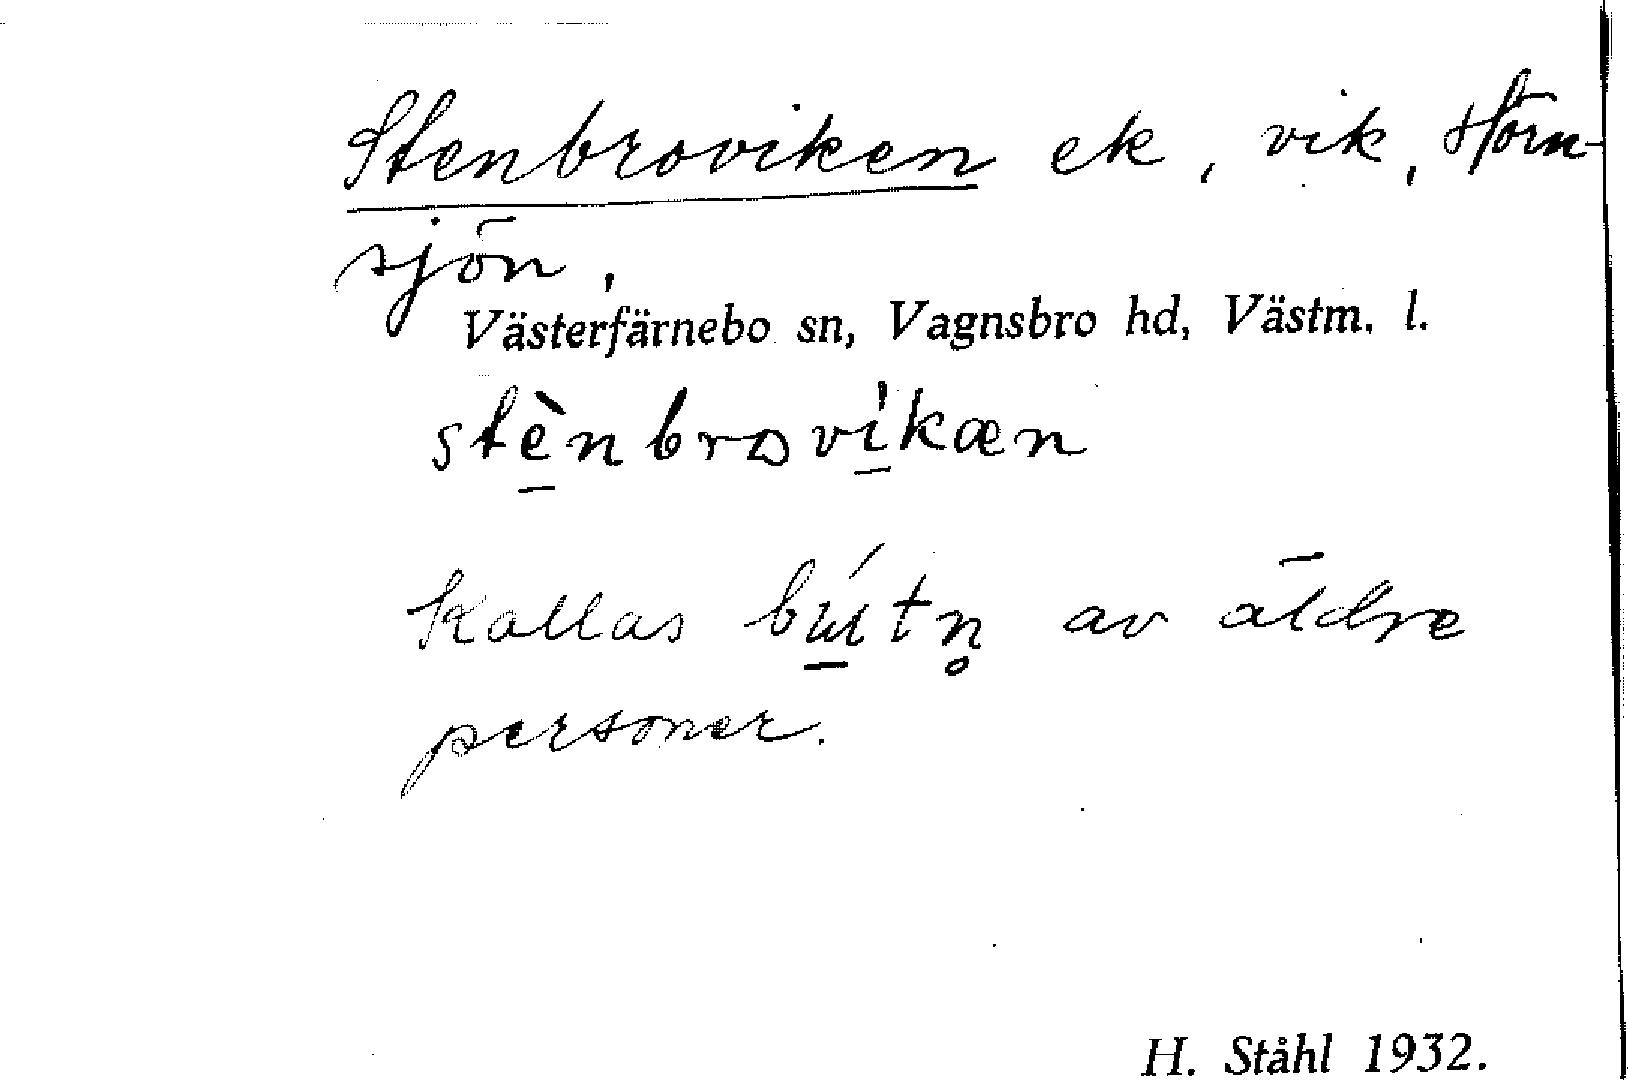 Stenbroviken ek, vik, Störn-
sjön,
Västerfärnebo sn, Vagnsbro hd, Västm. l.
stè̱nbrovi̱̍kæn
kallas bɯ̱́tn̥ av äldre
personer.
H. Ståhl 1932.